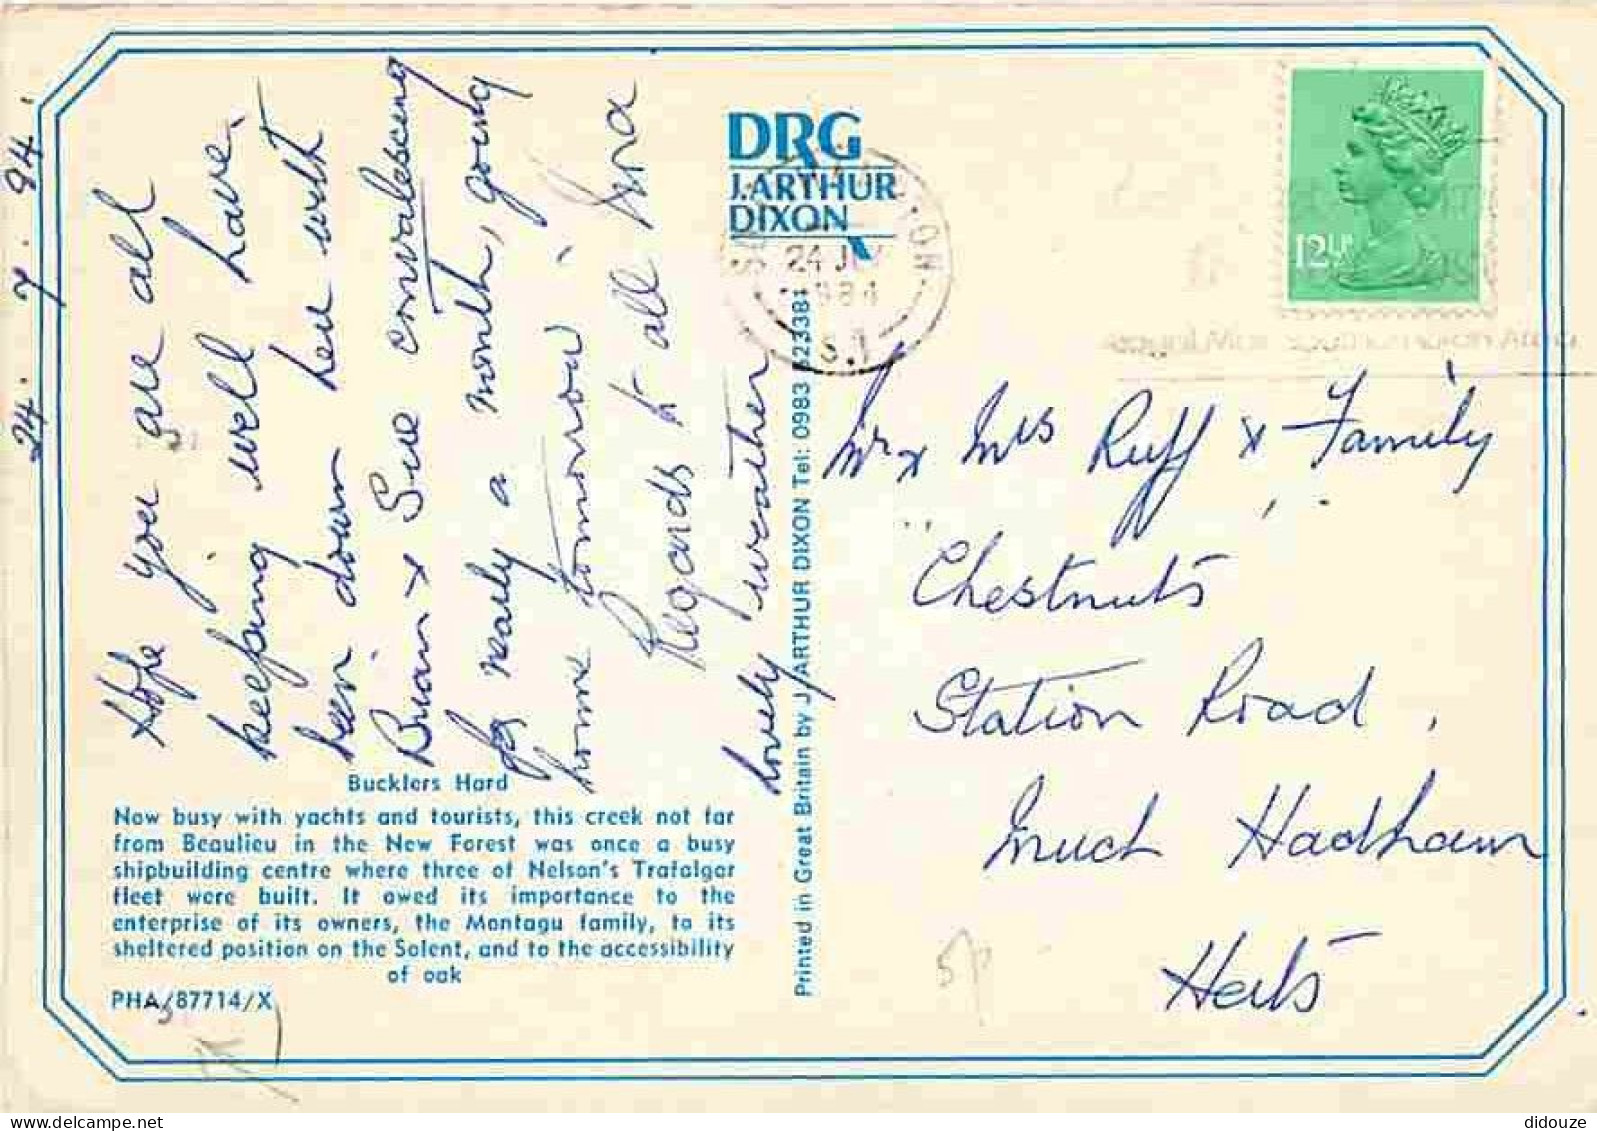 24.7.84.
Hope you are all
keeping well have
been down here with
Brian & Sue convalescing
for nearly a month, going
home tomorrow.
Regards to all
lovely weather
DRG
J.ARTHUR
DIXON
24 JLY
1984
12½P
Mr & Mrs Ruff & Family
Chestnuts
Station Road,
Much Hadham
Herts
5p
Bucklers Hard
Now busy with yachts and tourists, this creek not far
from Beaulieu in the New Forest was once a busy
shipbuilding centre where three of Nelson's Trafalgar
fleet were built. It owed its importance to the
enterprise of its owners, the Montagu family, to its
sheltered position on the Solent, and to the accessibility
of oak
PHA/87714/X
Printed in Great Britain by J ARTHUR DIXON Tel: 0983 523381
delcampe.net
didouze